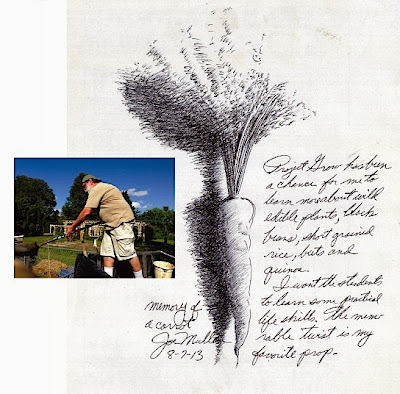 Project Grow has been
a chance for me to
learn more about wild
edible plants, black
beans, short grained
rice, bats and
quinoa.
I want the students
to learn some practical
life skills. The mem-
orable twist is my
favorite prop-
memory of
a carrot
Joe
8-7-13